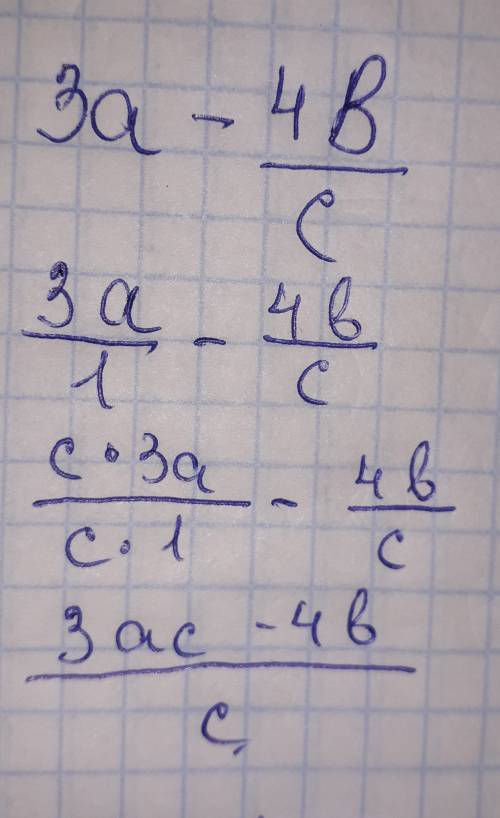 3a - 4в/c
3a/1 - 4в/c
c·3a/c·1 - 4в/c
3ac - 4в/c